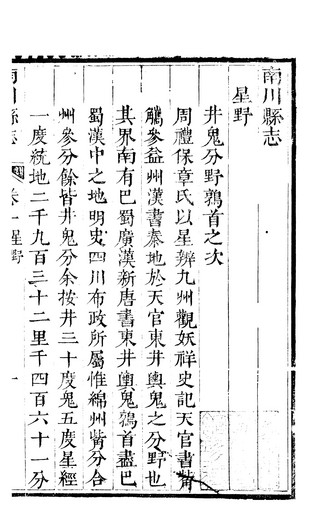 南川縣志
星野
井鬼分野鶉首之次
周禮保章氏以星辨九州觀妖祥史記天官書觜
觿參益州漢書秦地於天官東井輿鬼之分野也
其界南有巴蜀廣漢新唐書東井輿鬼鶉首盡巴
蜀漢中之地明史四川布政所屬惟綿州觜分合
州參分餘皆井鬼分余按井三十度鬼五度星經
一度統地二千九百三十二里千四百六十一分
南川縣志 卷一星野 一